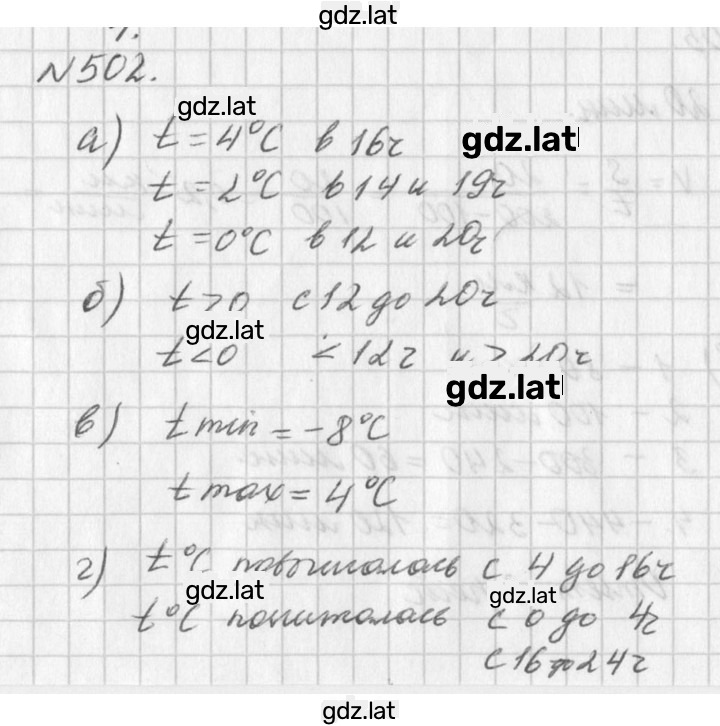 gdz.lat
№502.
gdz.lat
а) t = 4°C в 16ч gdz.lat
t = 2°C в 14 и 19ч
t = 0°C в 12 и 20ч
б) t > 0 с 12 до 20ч
gdz.lat
t < 0 < 12ч и > 20ч
gdz.lat
в) t min = -8°C
t max = 4°C
г) t°C повышалась с 4 до 16ч
gdz.lat gdz.lat
t°C понижалась с 0 до 4ч
с 16 до 24ч
gdz.lat